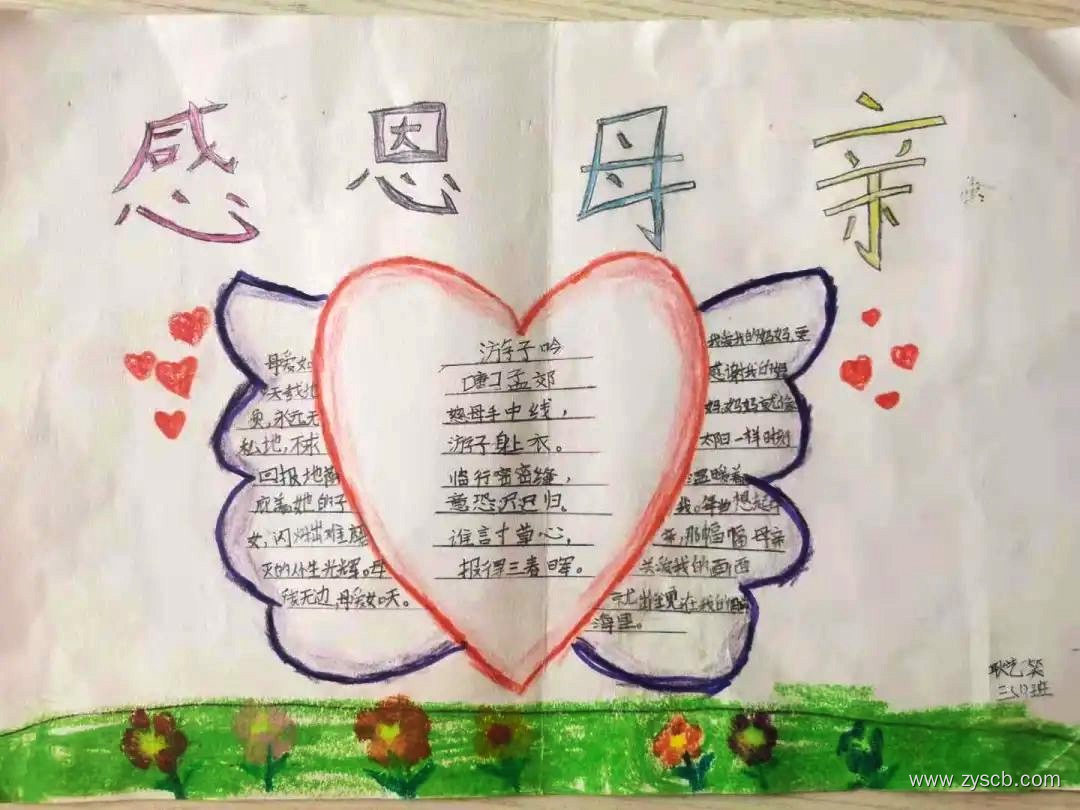 感恩母亲
母爱如
天载地
须,永远无
私地,不求
回报地
庇盖她的子
女,闪出难
灭的人生光辉。母
无边,母爱如天。
游子吟
[唐]孟郊
慈母手中线,
游子身上衣。
临行密密缝,
意恐迟迟归。
谁言寸草心,
报得三春晖。
我爱我的妈妈,更
感谢我的妈
妈,妈妈就像
太阳一样时刻
温暖着
我。每当想起
亲,那幅幅母亲
关爱我的画面
就出现在我的脑
海里。
三5班
www.zyscb.com